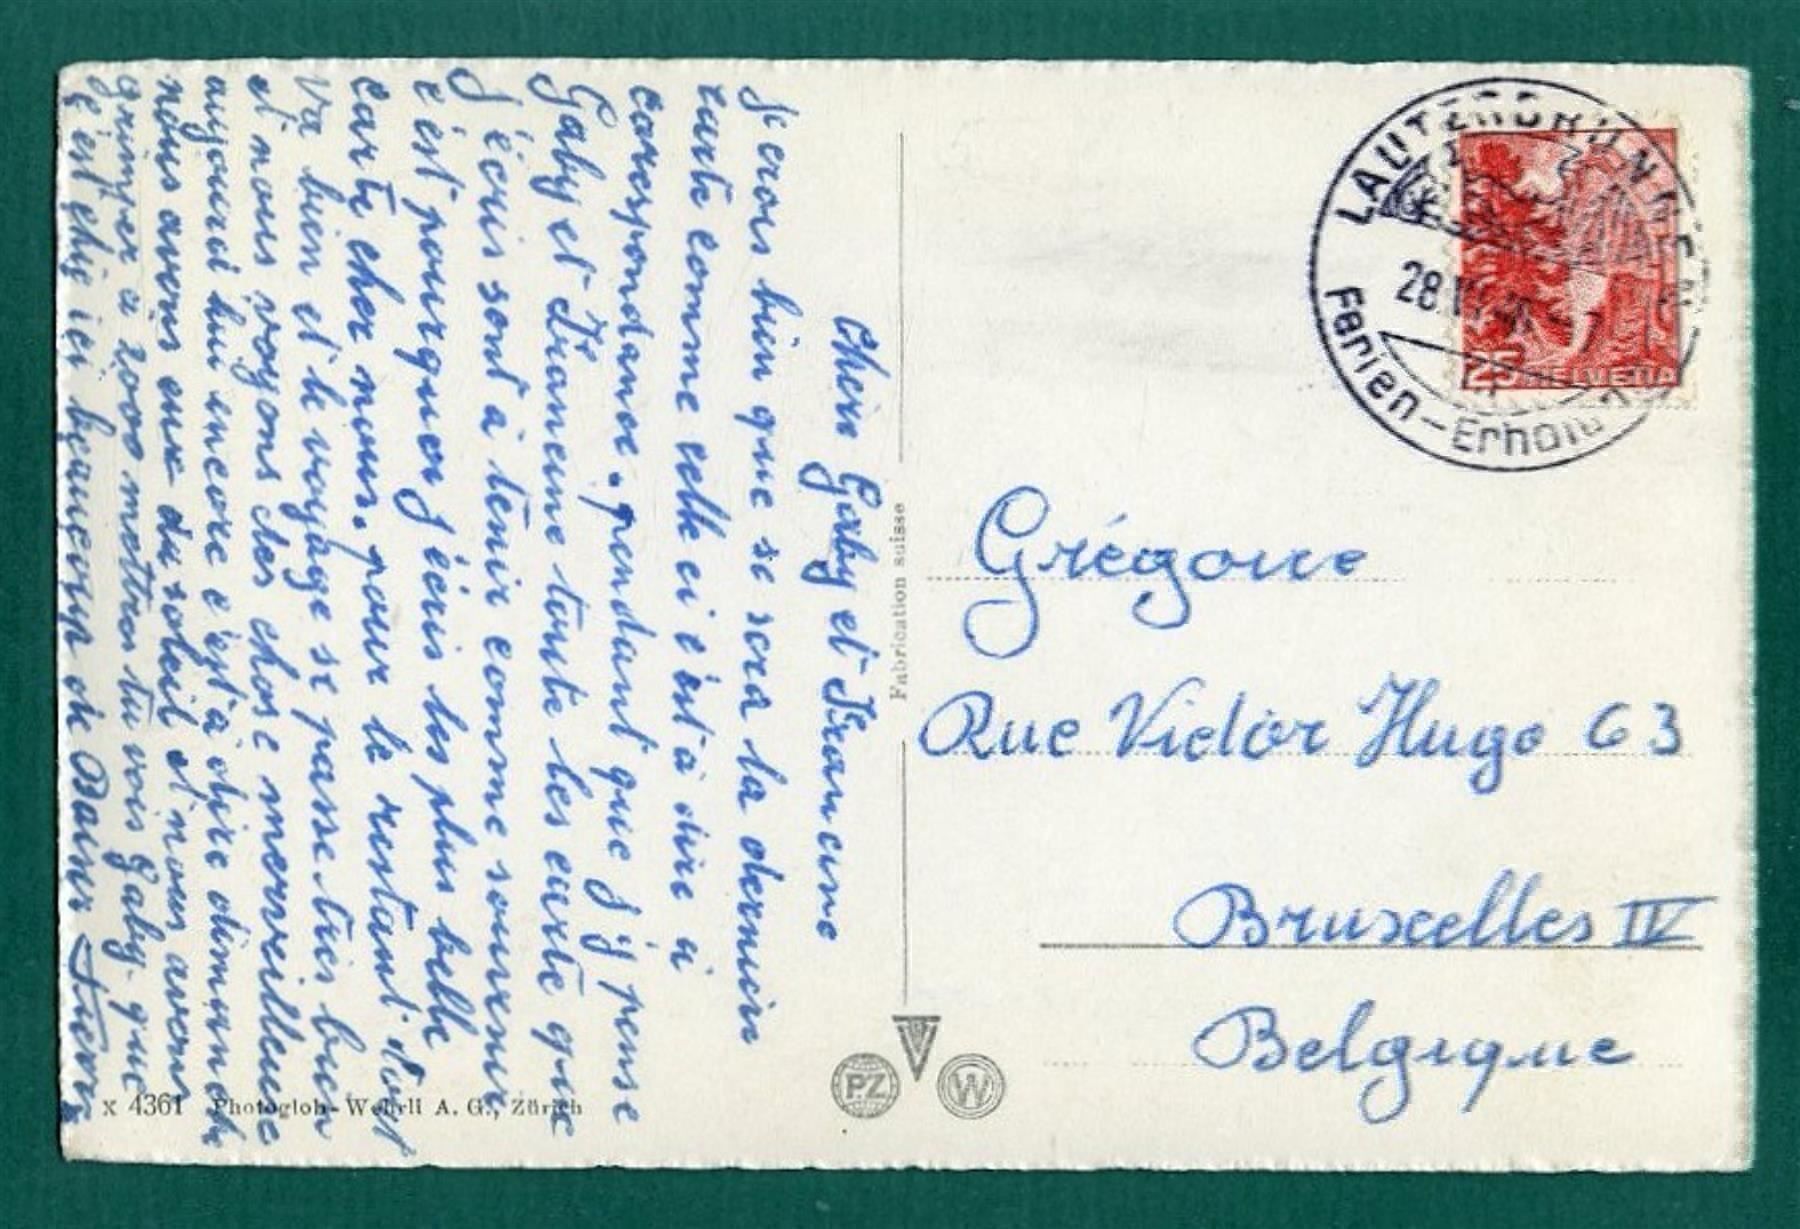 Chère Gaby et Francine
Je crois bien que se sera la dernière
carte comme celle ci c'est à dire si
correspondance. pendant que j'y pense
Gaby et Francine toute les carte que
J'écris sont à tenir comme souvenir
c'est pourquoi j'écris les plus belle
carte cher nous. pour le restant tout
va bien et le voyage se passe très bien
et nous voyons des chose merveilleuse
aujourd hui encore c'est à dire dimanche
nous avons eux du soleil et nous avons
grimper a 2000 mettres tu vois Gaby que
c'est chic ici beaucoup de Baiser
Fabrication suisse
X 4361 Photoglob-Wehrli A. G., Zürich
PZ
W
LAUTERBRUNNEN
28.
Ferien-Erholung
25 HELVETIA
Grégoire
Rue Victor Hugo 63
Bruxelles IV
Belgique